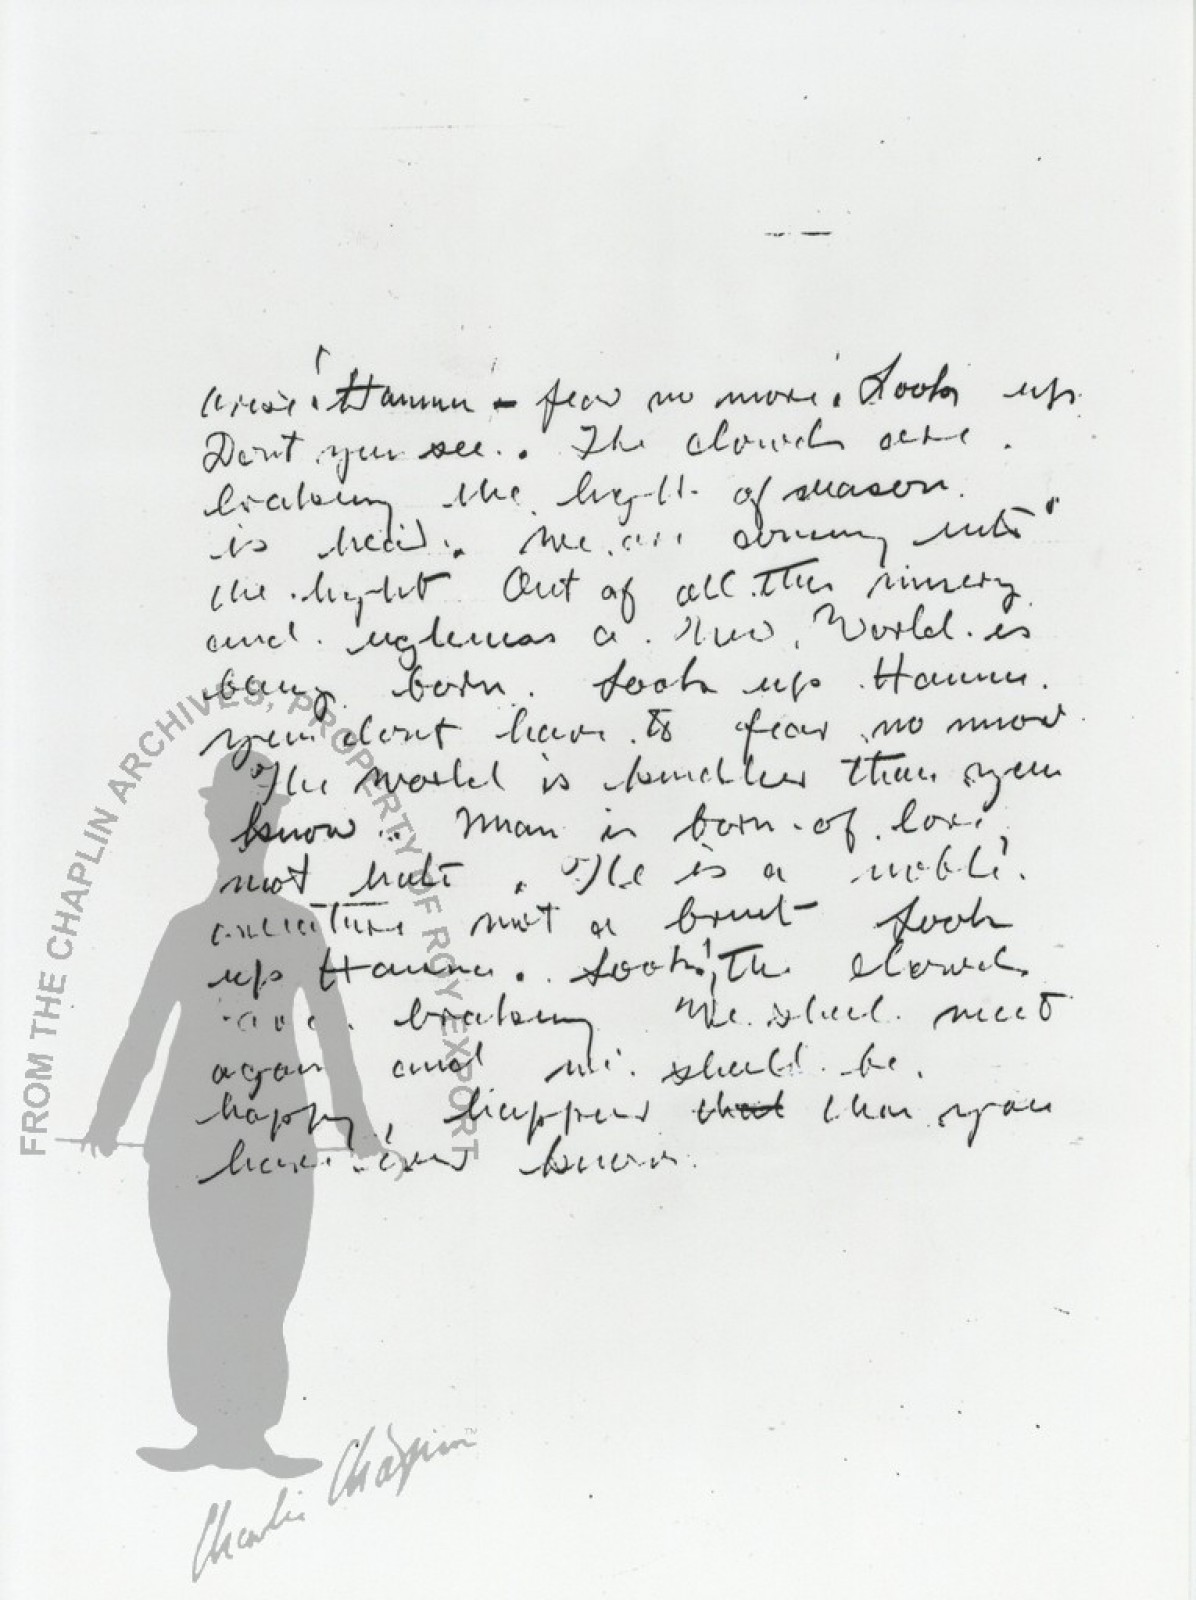 arise! Hannah - fear no more! Look up
Dont you see. The clouds are
breaking the light of reason
is here. We are coming into
the light Out of all this misery
and ugliness a New World is
being born. Look up Hannah.
you dont have to fear no more
The world is kindlier than you
know. Man is born of love
not hate. He is a noble
creature not a brute Look
up Hannah. Look! The clouds
are breaking We shall meet
again and we shall be
happy, happier than you
have ever known.
FROM THE CHAPLIN ARCHIVES, PROPERTY OF ROY EXPORT
Charlie Chaplin